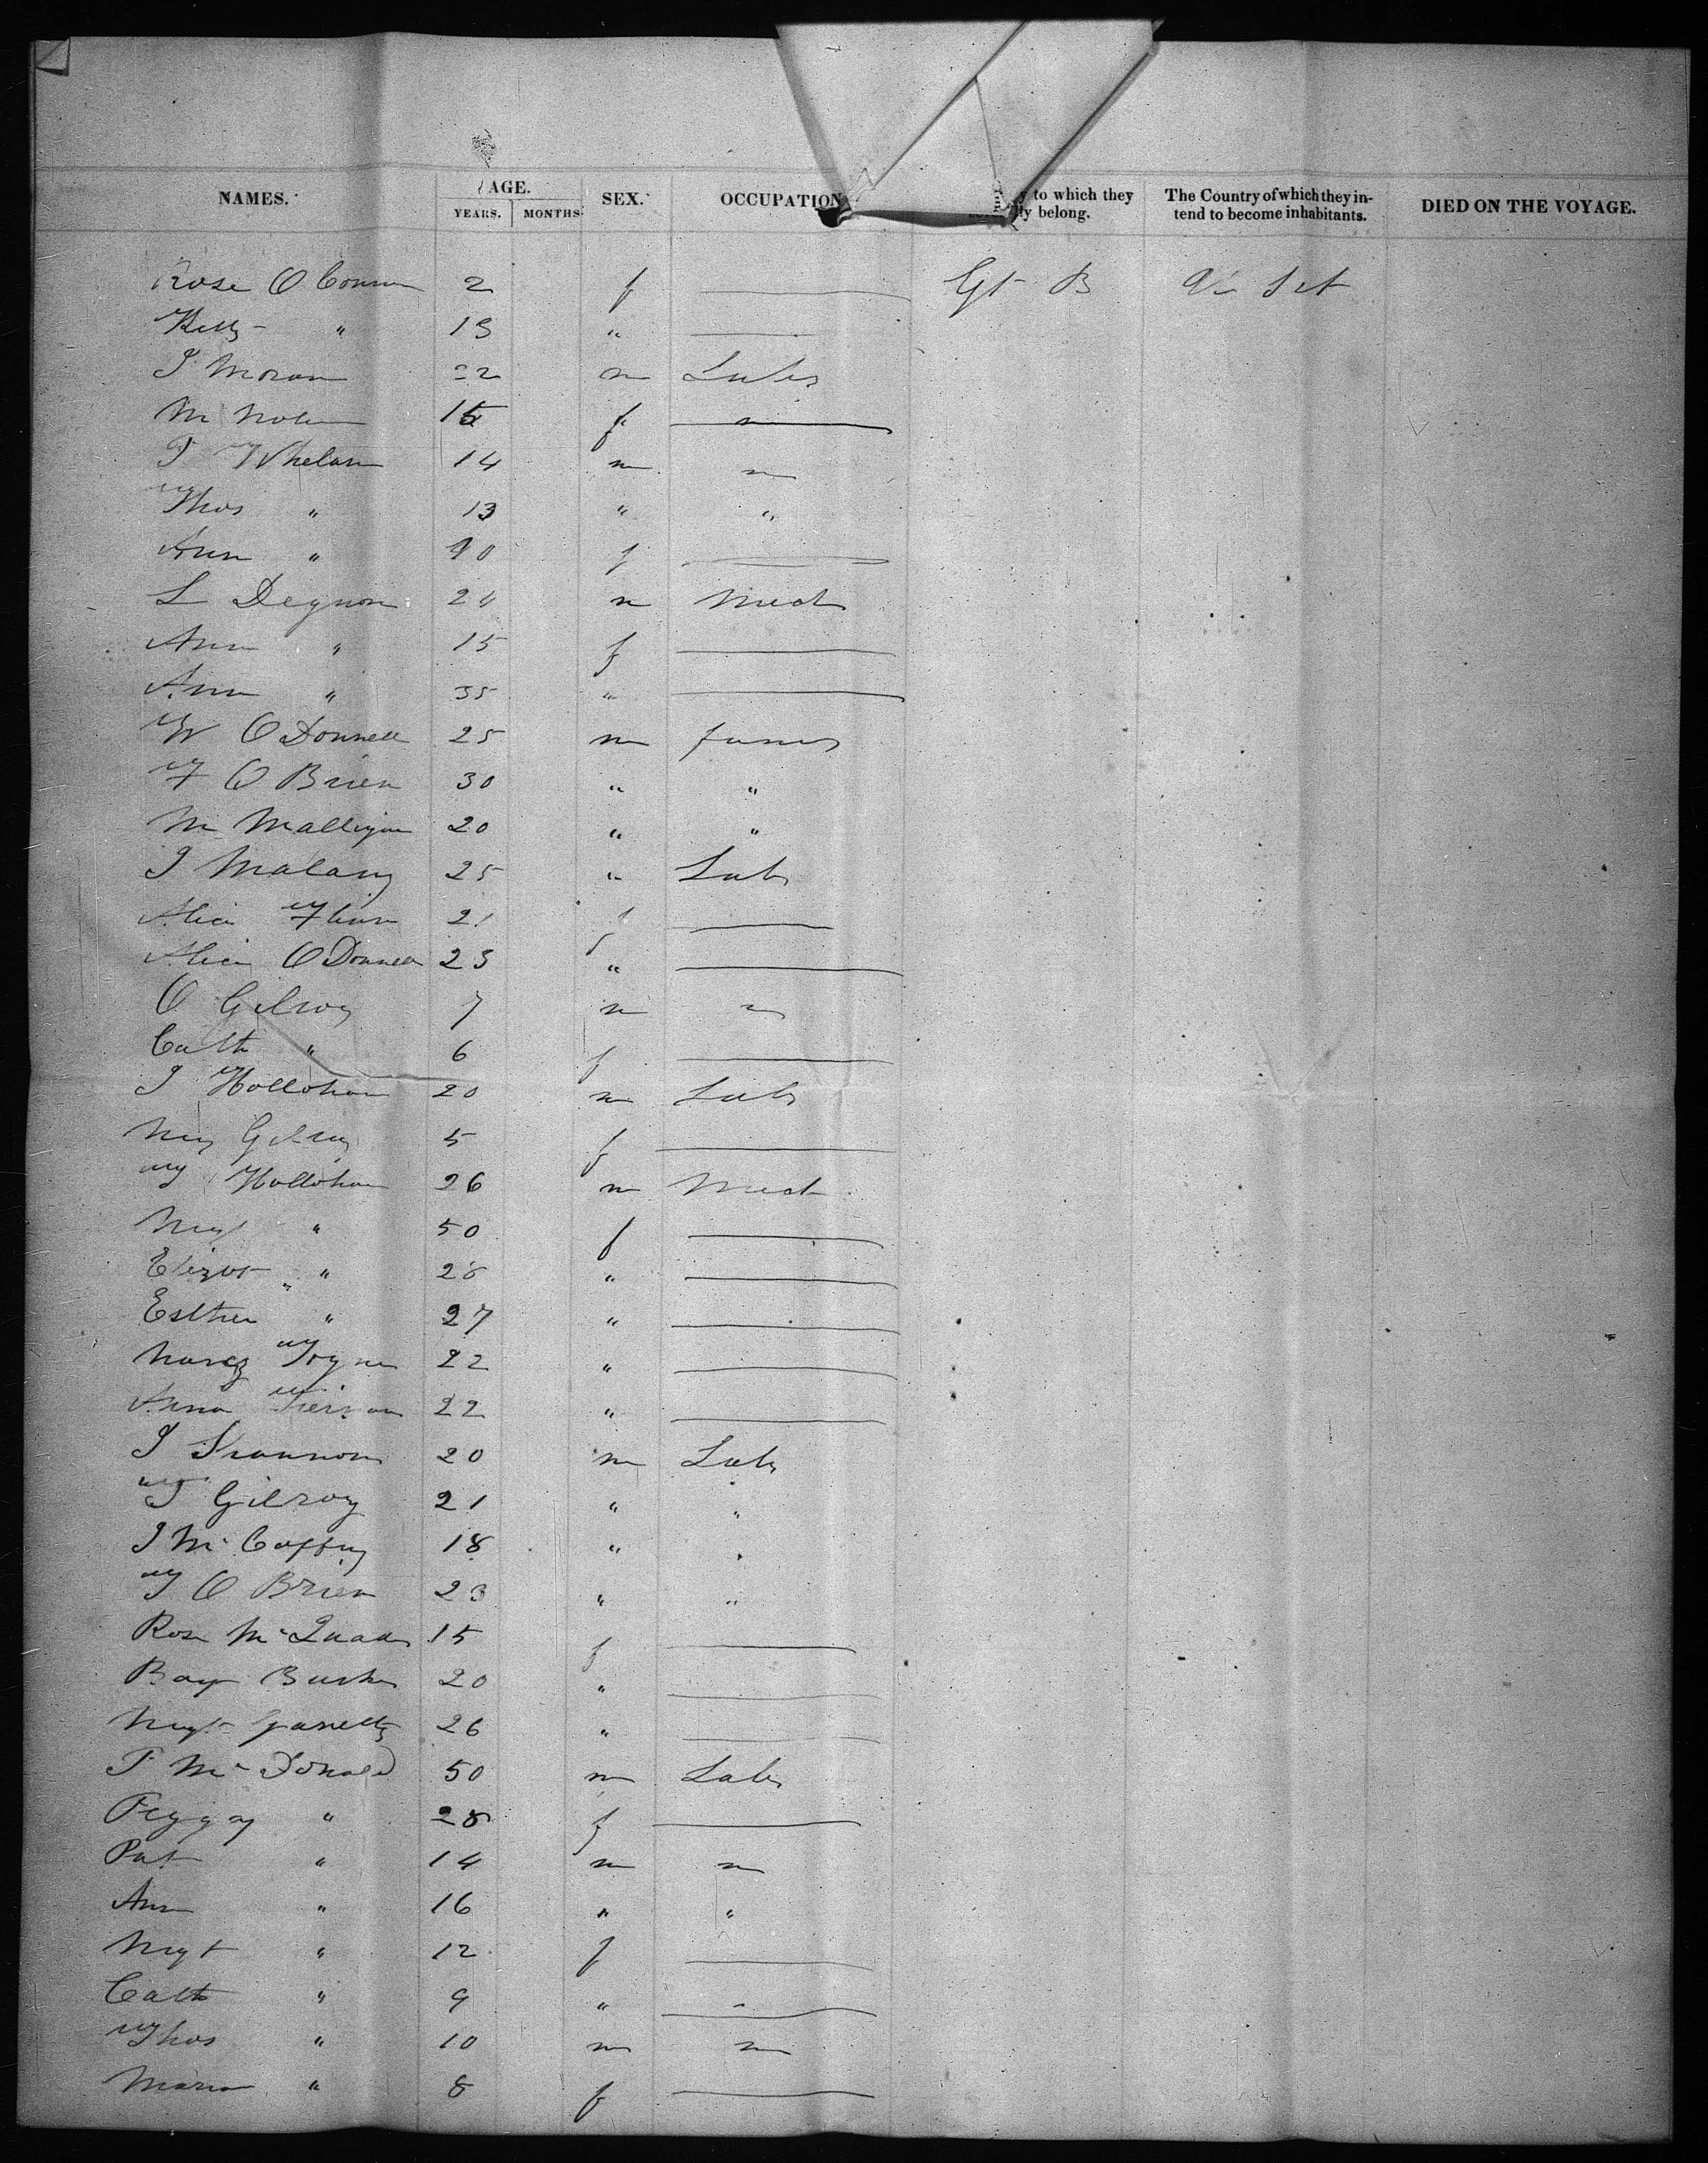 NAMES. AGE. SEX. OCCUPATION to which they The Country of which they in- DIED ON THE VOYAGE.
YEARS. MONTHS ly belong. tend to become inhabitants.
Rose O Connor 2 f Gt B U Sts
Kelly " 13 "
J Moran 22 m Labr
M Nolan 15 f
P Whelan 14 m
Thos " 13 " "
Ann " 10 f
L Degnon 24 m Mech
Ann " 15 f
Ann " 35 "
W O Donnell 25 m farmer
F O Brien 30 " "
M Malligan 20 " "
J Malany 25 " Labr
Alice Flinn 21 f
Alice O Donnell 23 "
O Gilroy 7 m
Cath " 6 f
J Hollohan 20 m Labr
My Gilroy 5 f
Hollohan 26 m Mech
Mgt " 50 f
Elizbt " 28 "
Esther " 27 "
22 "
Anna Tiernan 22 "
J Shannon 20 m Labr
T Gilroy 21 " "
J Mc Caffry 18 " "
T O Brien 23 " "
Rose Mc Quade 15 f
20 "
Mgt 26 "
P Mc Donald 50 m Labr
Peggy " 28 f
Pat " 14 m
Ann " 16 " "
Mgt " 12 f
Cath " 9 "
Thos " 10 m
Maria " 8 f